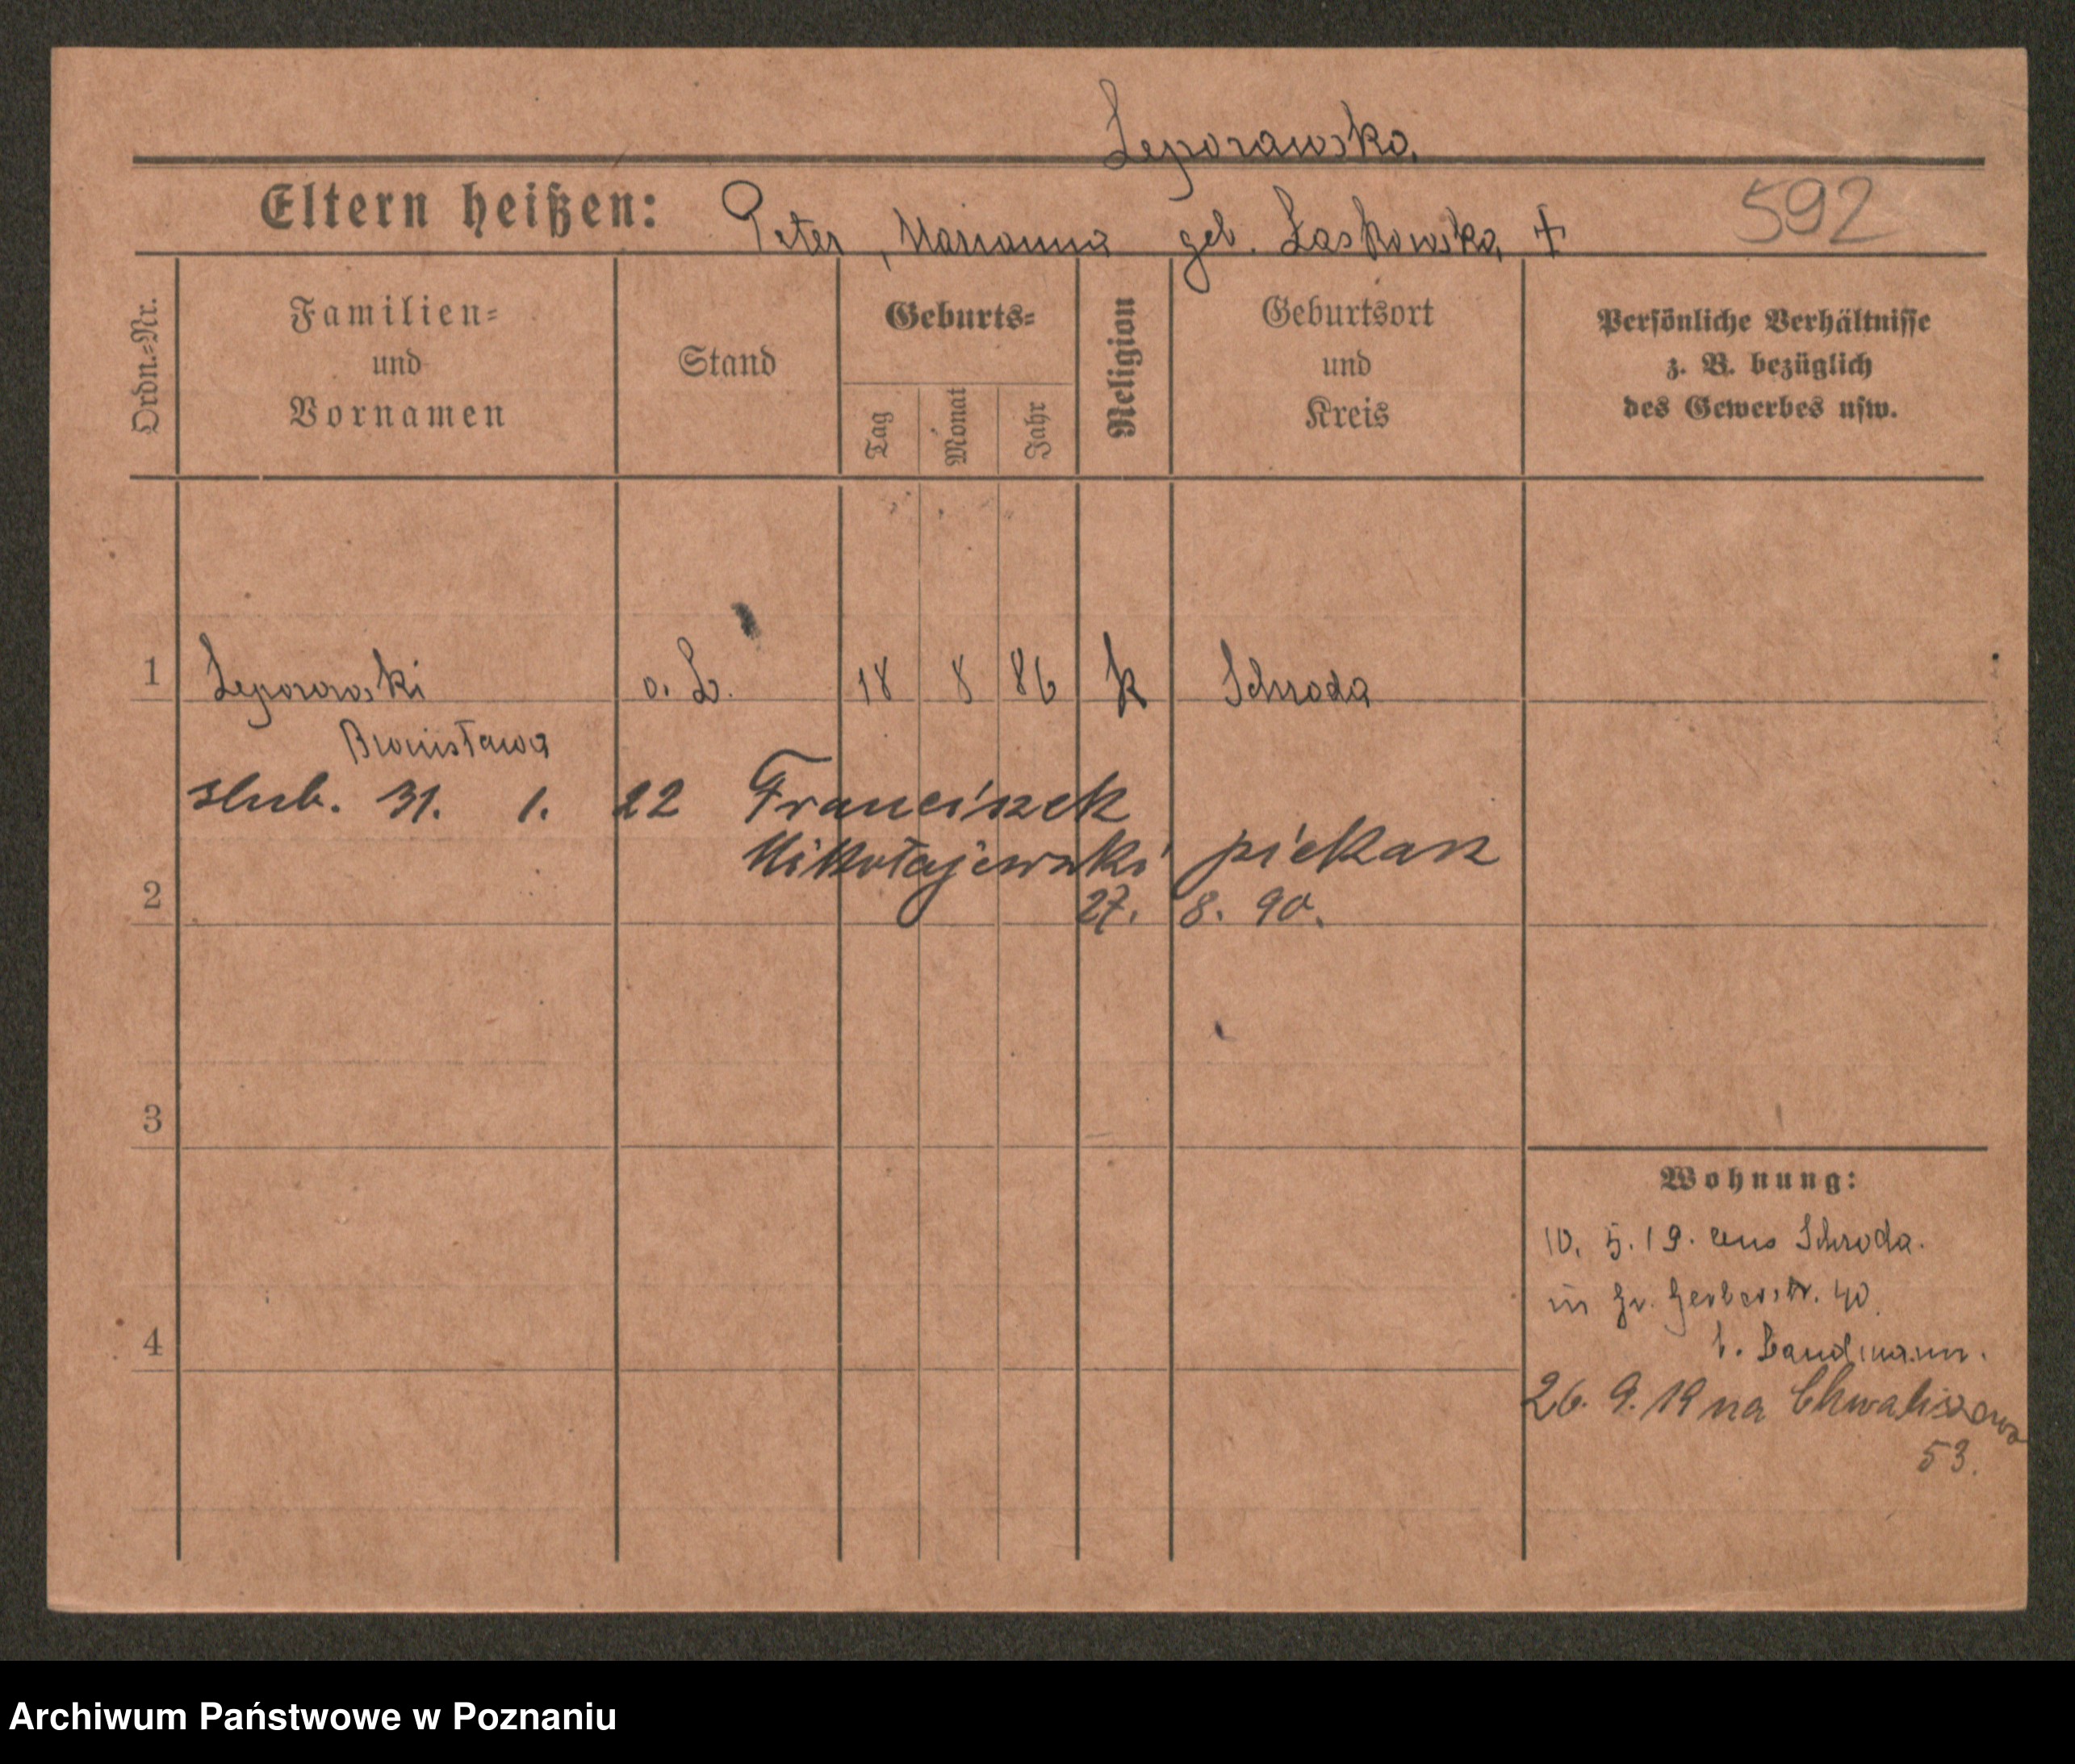 Leporowska
Eltern heißen: Peter, Marianna geb. Laskowska +
592
Ordn.-Nr.
Familien-
und
Vornamen
Stand
Geburts-
Tag
Monat
Jahr
Religion
Geburtsort
und
Kreis
Persönliche Verhältnisse
z. B. bezüglich
des Gewerbes usw.
1 Leporowski o. B. 18 8 86 k Schroda
Bronisława
slub. 31. 1. 22 Franciszek
Mikołajewski piekarz
2 27. 8. 90.
3
Wohnung:
10. 5. 19. aus Schroda.
in Gr. Gerberstr. 40.
b. Bandmann.
4
26. 9. 19 na Chwaliszewo
53.
Archiwum Państwowe w Poznaniu